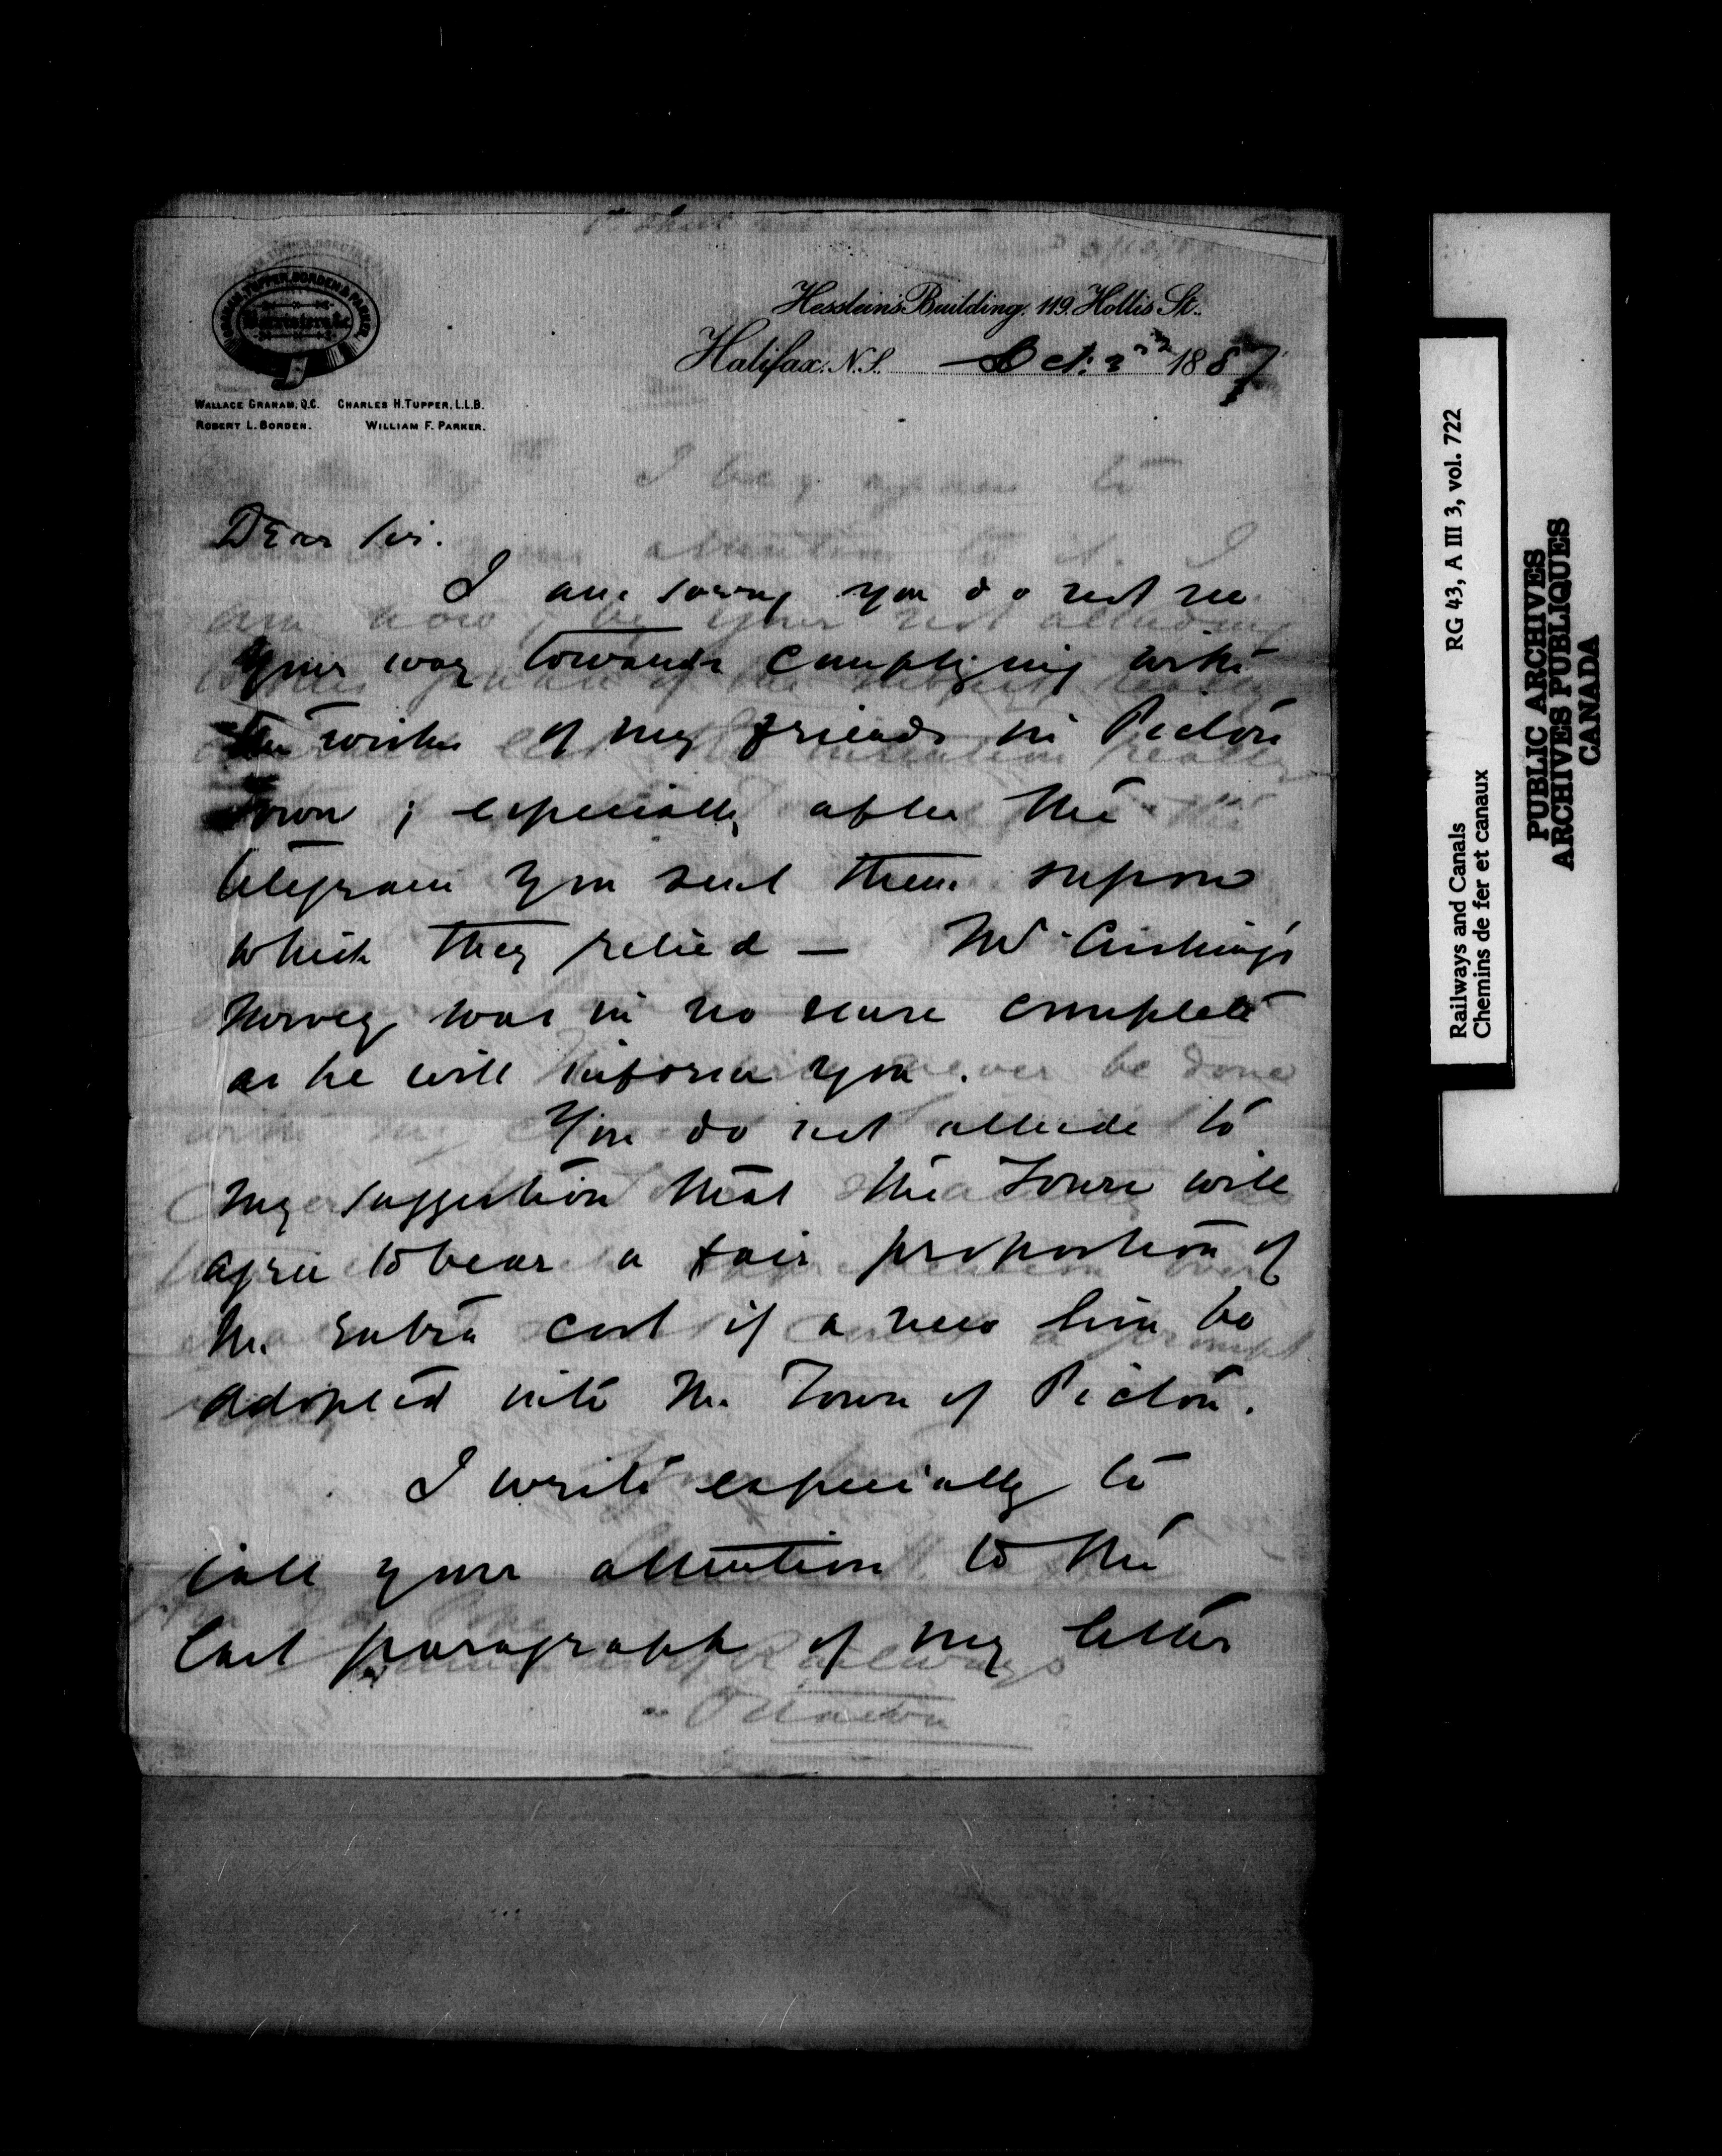 GRAHAM, TUPPER, BORDEN & PARKER.
Barristers &c.
WALLACE GRAHAM, Q.C. CHARLES H. TUPPER, L.L.B.
ROBERT L. BORDEN. WILLIAM F. PARKER.
Hesslein's Building, 119. Hollis St.
Halifax. N.S. Oct: 3rd 1887
Dear Sir.
I am sorry you do not see
your way towards complying with
the wishes of my friends in Pictou
Town ; especially after the
telegram you sent them upon
which they relied —
Survey was in no sense complete
as he will inform you.
You do not allude to
my suggestion that the Town will
agree to bear a fair proportion of
the extra cost if a new line be
adopted into the Town of Pictou.
I write especially to
call your attention to the
last paragraph of my letter
Railways and Canals RG 43, A III 3, vol. 722
Chemins de fer et canaux
PUBLIC ARCHIVES
ARCHIVES PUBLIQUES
CANADA